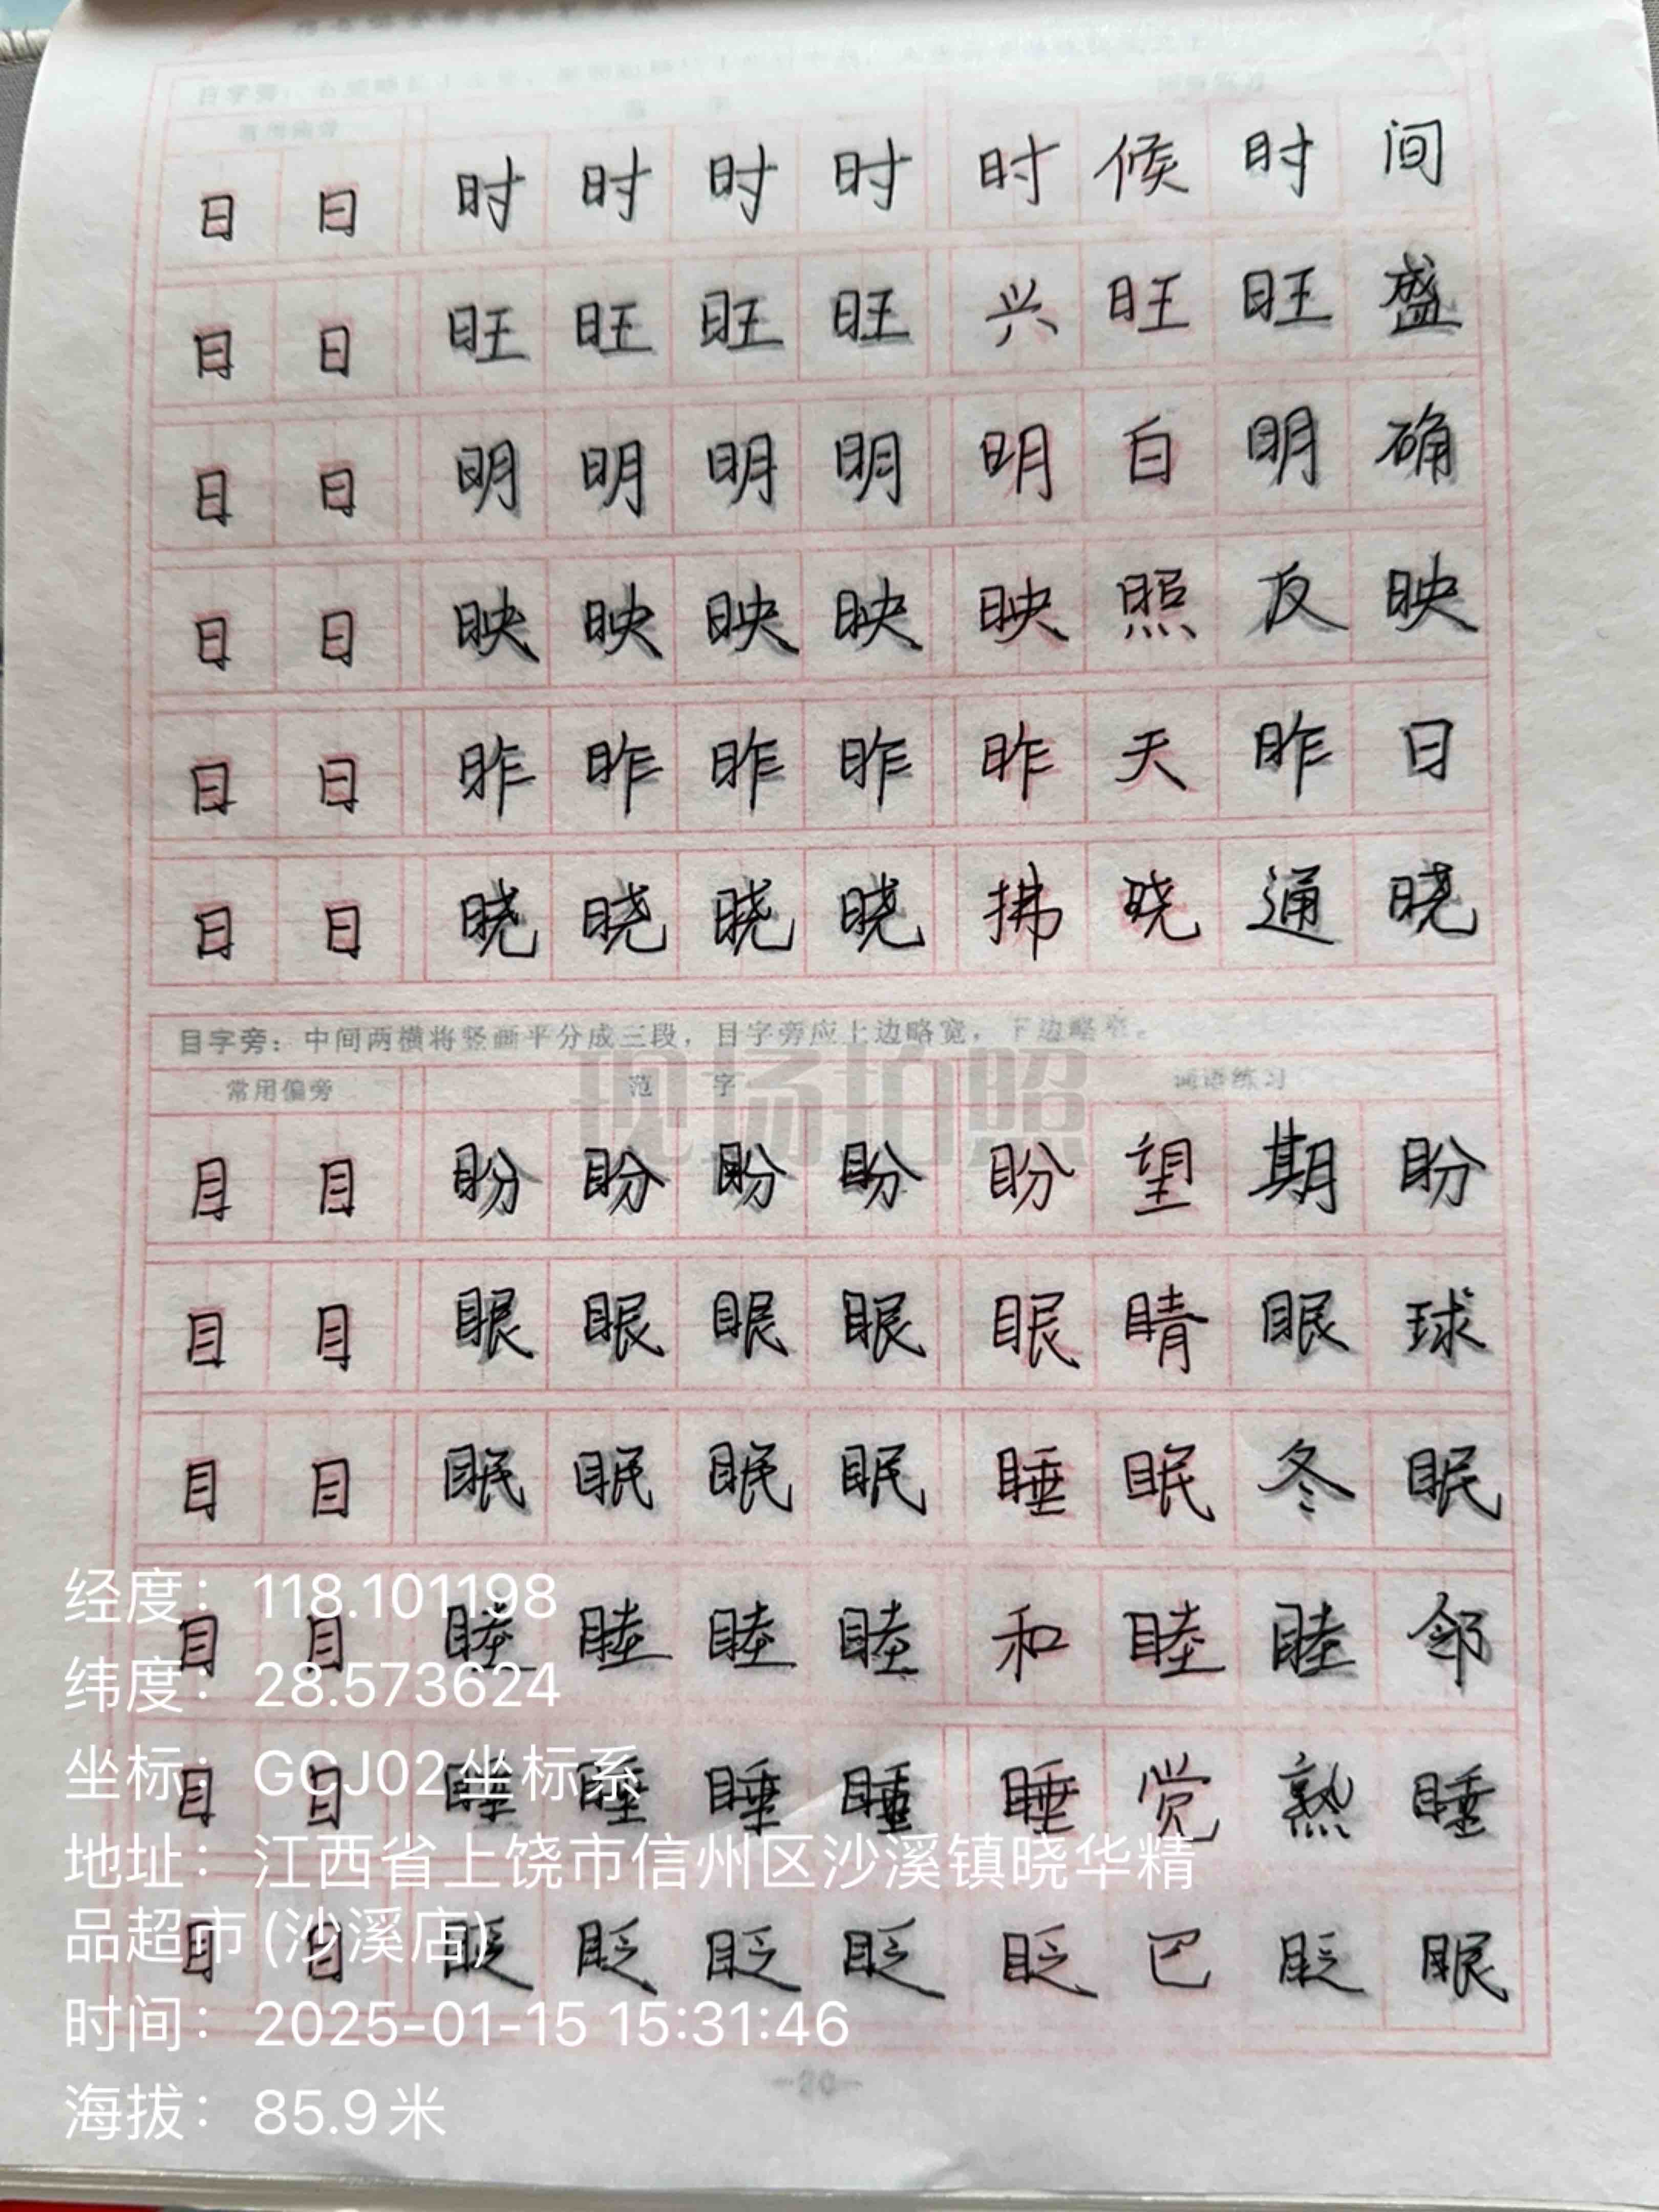 日字旁：
日 日 时 时 时 时 时 候 时 间
日 日 旺 旺 旺 旺 兴 旺 旺 盛
日 日 明 明 明 明 明 白 明 确
日 日 映 映 映 映 映 照 反 映
日 日 昨 昨 昨 昨 昨 天 昨 日
日 日 晓 晓 晓 晓 拂 晓 通 晓
目字旁：中间两横将竖画平分成三段，目字旁应上边略宽，下边略窄。
常用偏旁 范 字 词语练习
现场拍照
目 目 盼 盼 盼 盼 盼 望 期 盼
目 目 眼 眼 眼 眼 眼 睛 眼 球
目 目 眠 眠 眠 眠 睡 眠 冬 眠
目 目 睦 睦 睦 睦 和 睦 睦 邻
目 目 睡 睡 睡 睡 睡 觉 熟 睡
目 目 眨 眨 眨 眨 眨 巴 眨 眼
经度：118.101198
纬度：28.573624
坐标：GCJ02坐标系
地址：江西省上饶市信州区沙溪镇晓华精
品超市(沙溪店)
时间：2025-01-15 15:31:46
海拔：85.9米
—20—